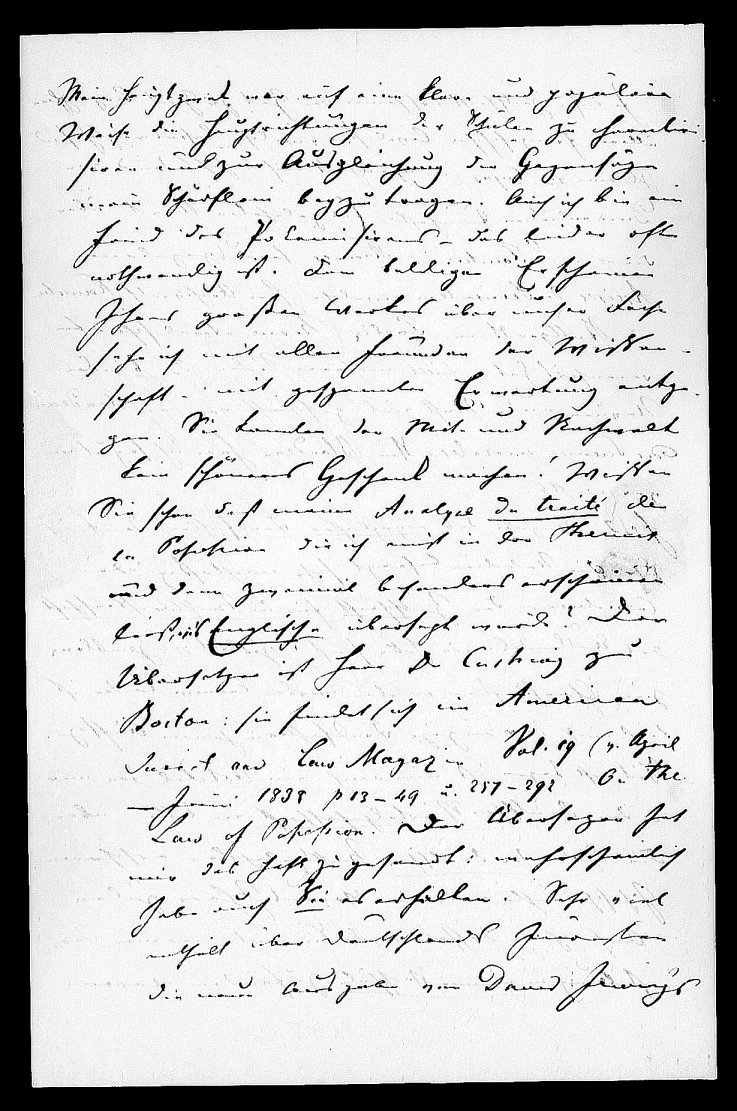 Mein Hauptzweck war auf eine klare und populäre
Weise die Hauptrichtungen der Schulen zu charakteri-
siren und zur Ausgleichung der Gegensätze
mein Schärflein beyzutragen. Auch ich bin ein
Feind des Polemisirens – das leider oft
nothwendig ist. Dem baldigen Erscheinen
Ihres großen Werkes über unser Fach
sehe ich mit allen Freunden der Wissen-
schaft – mit gespannter Erwartung entge-
gen. Sie konnten der Mit- und Nachwelt
kein schöneres Geschenk machen! Wissen
Sie schon daß meine Analyse du traité de
la Possession die ich erst in der Themis
und dann zweimal besonders erscheinen
ließ, ins Englische übersetzt wurde? Der
Übersetzer ist Herr Dr Cushing zu
Boston: sie findet sich im American
Jurist and Law Magazin Vol. 19 (v. April
– Juni 1838 p 13–49 u. 257–292 On the
Law of Possession. Der Übersetzer hat
mir das Heft zugesandt: wahrscheinlich
habe auch Sie es erhalten. Sehr viel
enthält über Deutschlands Juristen
die neue Ausgabe von David Irwing's